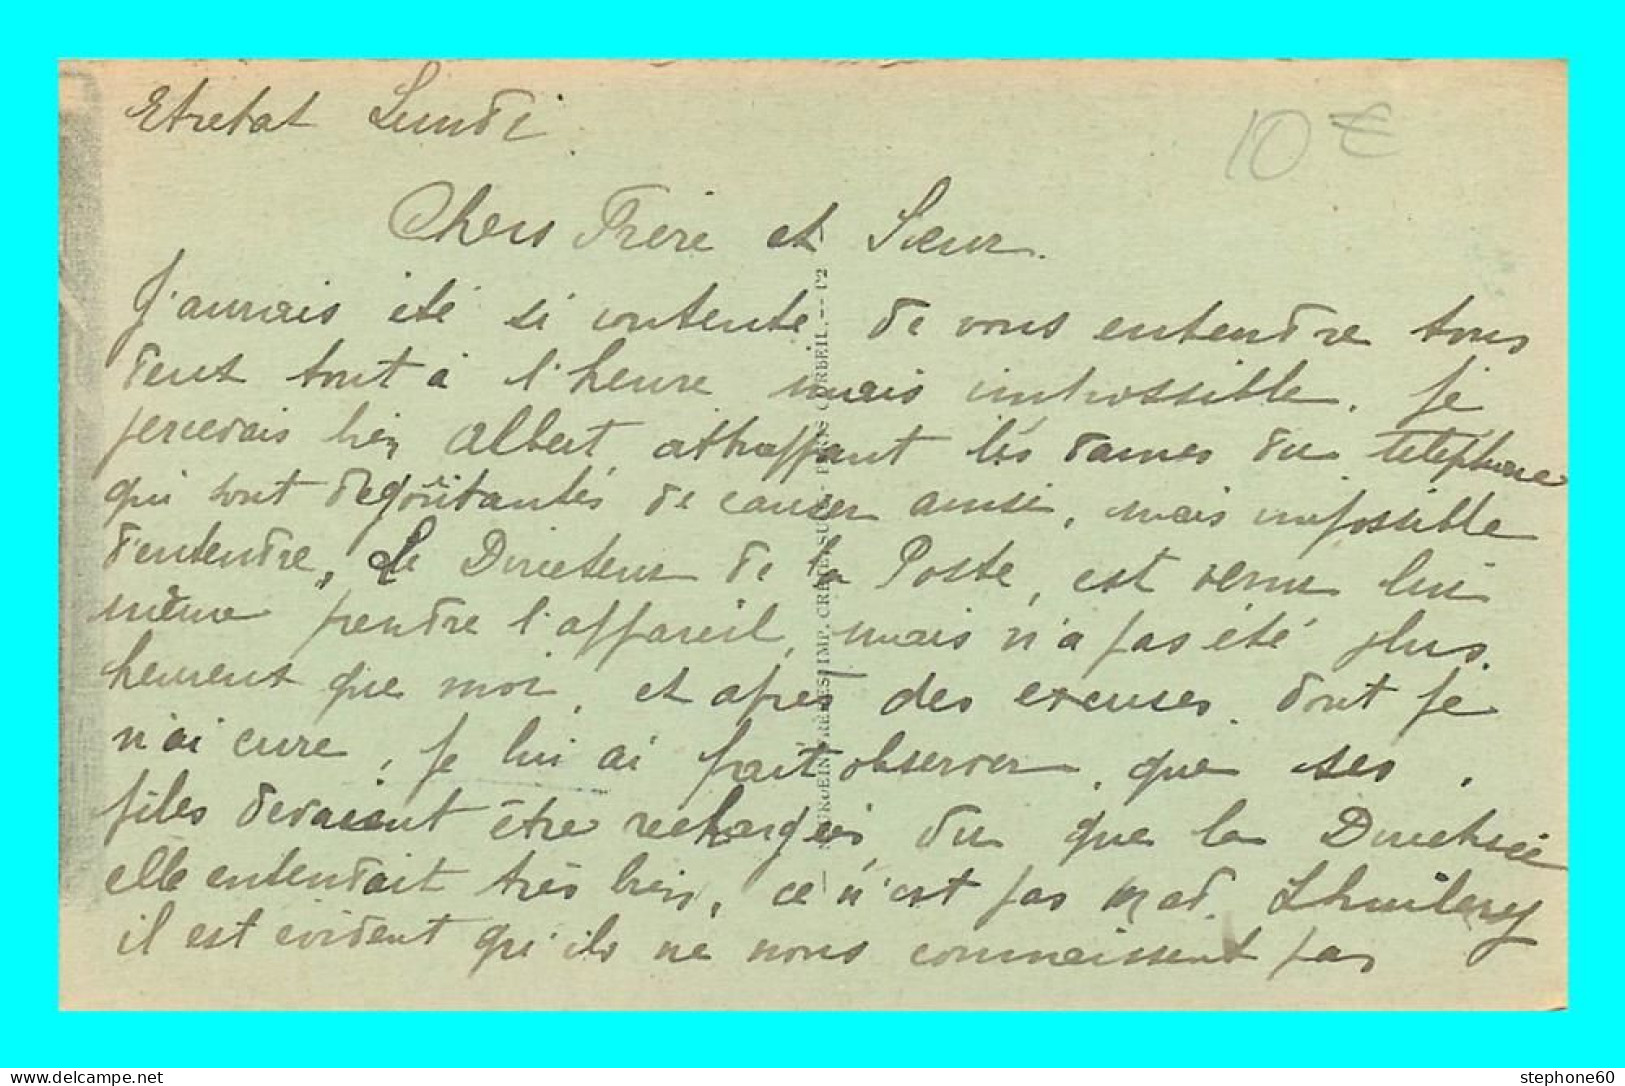 Etretat Lundi.
10€
Chers Frère et Sœur.
J'aurais été si contente de vous entendre tous
deux tout à l'heure mais impossible. Je
percevais bien Albert attrappant les dames du téléphone
qui sont dégoûtantes de causer ainsi, mais impossible
d'entendre, Le Directeur de la Poste, est venu lui
même prendre l'appareil, mais n'a pas été plus.
heureux que moi, et après des excuses. dont je
n'ai cure, je lui ai fait observer, que ses,
piles devaient être rechargées, du que la Directrice
elle entendait très bien, ce n'est pas Mad.
il est évident qu'ils ne nous connaissent pas
IMP. CRÉTÉ SUCC. PARIS CORBEIL. — 122
stephone60